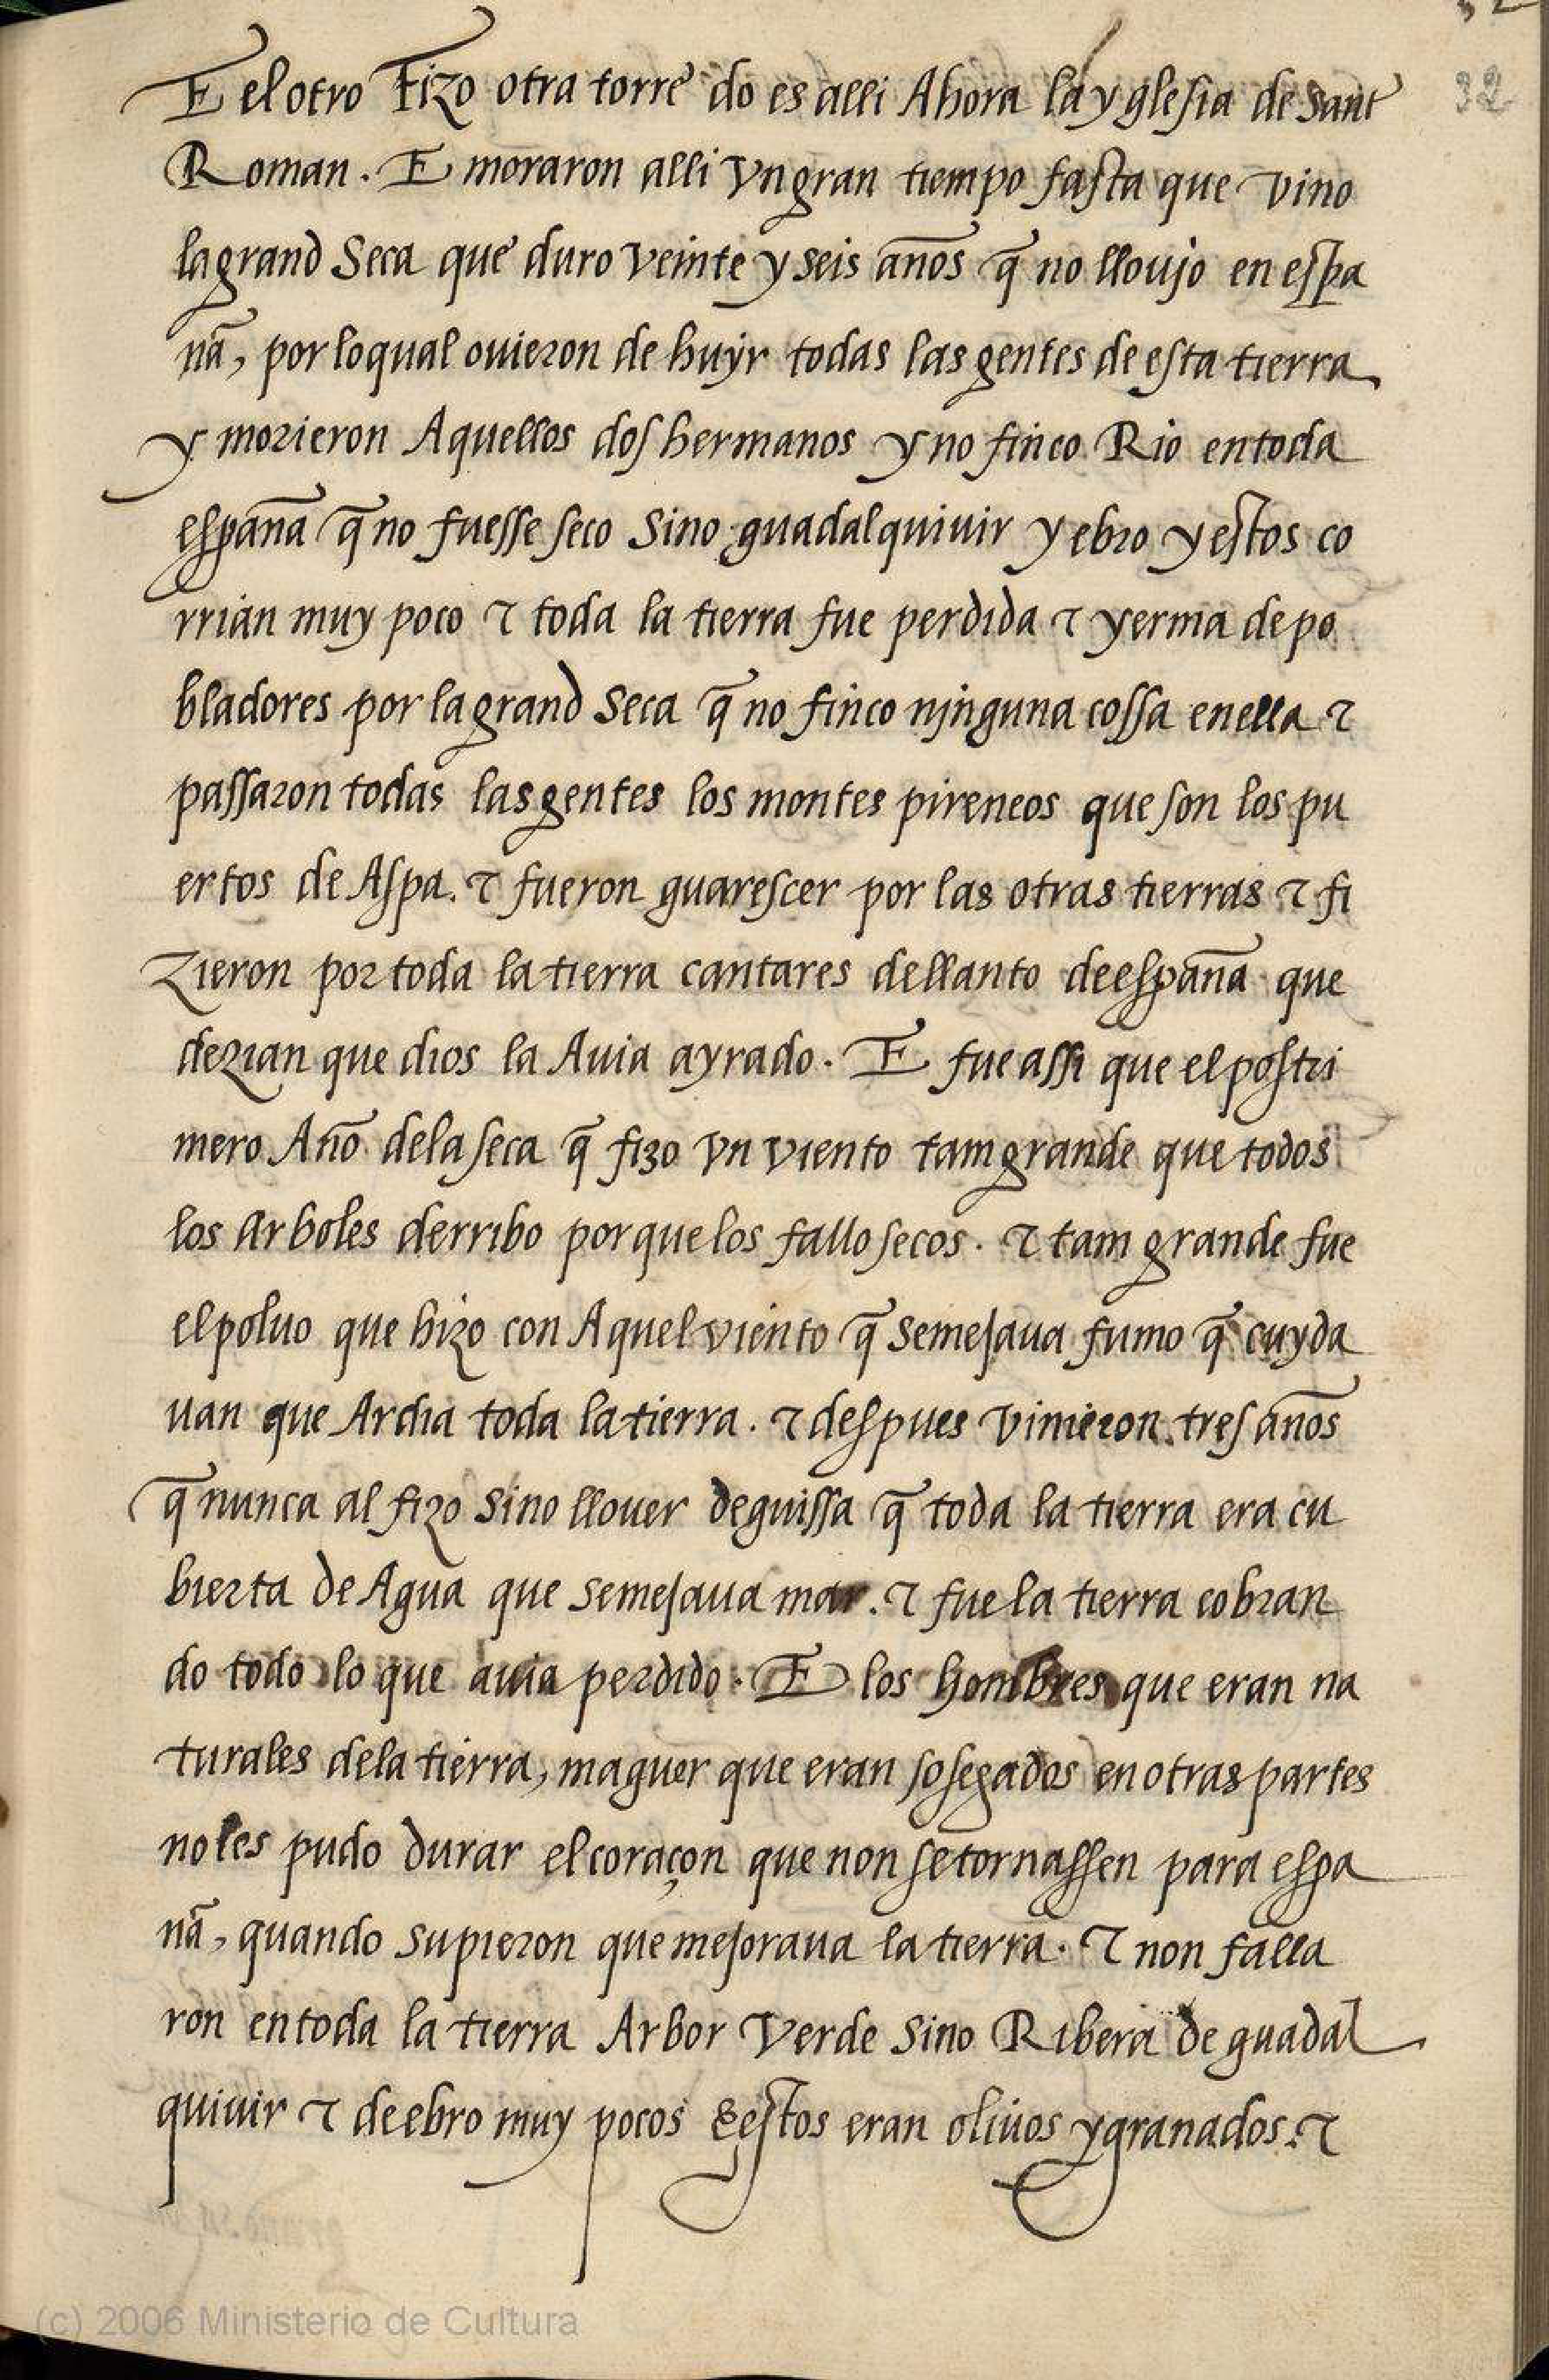 32
E el otro Fizo otra torre do es alli Ahora la yglesia de sant
Roman. E moraron alli vn gran tiempo fasta que vino
la grand Seca que duro veinte y seis años q̃ no lloujo en espa
ña, por lo qual ouieron de huyr todas las gentes de esta tierra
y morieron Aquellos dos hermanos y no finco Rio en toda
españa q̃ no fuesse seco sino guadalquiuir y ebro y estos co
rrian muy poco ⁊ toda la tierra fue perdida ⁊ yerma de po
bladores por la grand Seca q̃ no finco njnguna cossa en ella ⁊
passaron todas las gentes los montes pireneos que son los pu
ertos de Aspa. ⁊ fueron guarescer por las otras tierras ⁊ fi
zieron por toda la tierra cantares del lanto de españa que
dezian que dios la Auia ayrado. E fue assi que el postri
mero Año de la seca q̃ fizo vn viento tam grande que todos
los arboles derribo porque los fallo secos. ⁊ tam grande fue
el poluo que hizo con Aquel viento q̃ semejaua fumo q̃ cuyda
uan que Ardia toda la tierra. ⁊ despues vinieron tres años
q̃ nunca al fizo sino llouer de guissa q̃ toda la tierra era cu
bierta de Agua que semejaua mar. ⁊ fue la tierra cobran
do todo lo que auia perdido. E los hombres que eran na
turales de la tierra, maguer que eran sosegados en otras partes
no les pudo durar el coraçon que non se tornassen para espa
ña, quando supieron que mejoraua la tierra. ⁊ non falla
ron en toda la tierra Arbor verde sino Ribera de guadal
quiuir ⁊ de ebro muy pocos E estos eran oliuos y granados. ⁊
(c) 2006 Ministerio de Cultura